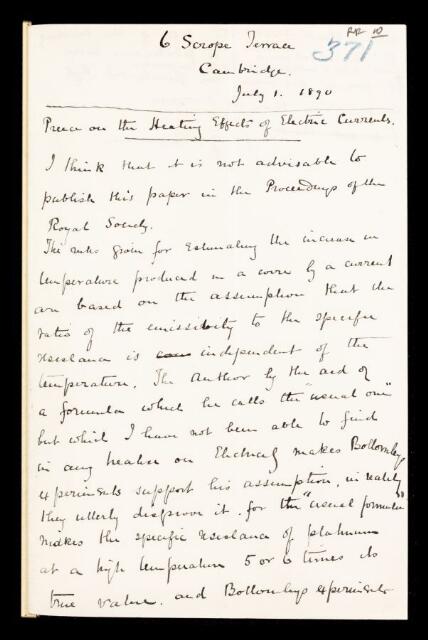 RR 10
371
6 Scrope Terrace
Cambridge.
July 1. 1890
Preece on the Heating Effects of Electric Currents.
I think that it is not advisable to
publish this paper in the Proceedings of the
Royal Society.
The rules given for Estimating the increase in
temperature produced in a wire by a current
are based on the assumption that the
ratio of the emissivity to the specific
resistance is independent of the
temperature. The Author by the aid of
a formula which he calls the "usual one"
but which I have not been able to find
in any treatise on Electricity makes Bottomleys
experiments support his assumption, in reality
they utterly disprove it. for the "usual formula"
makes the specific resistance of platinum
at a high temperature 5 or 6 times its
true value. and Bottomleys experiments